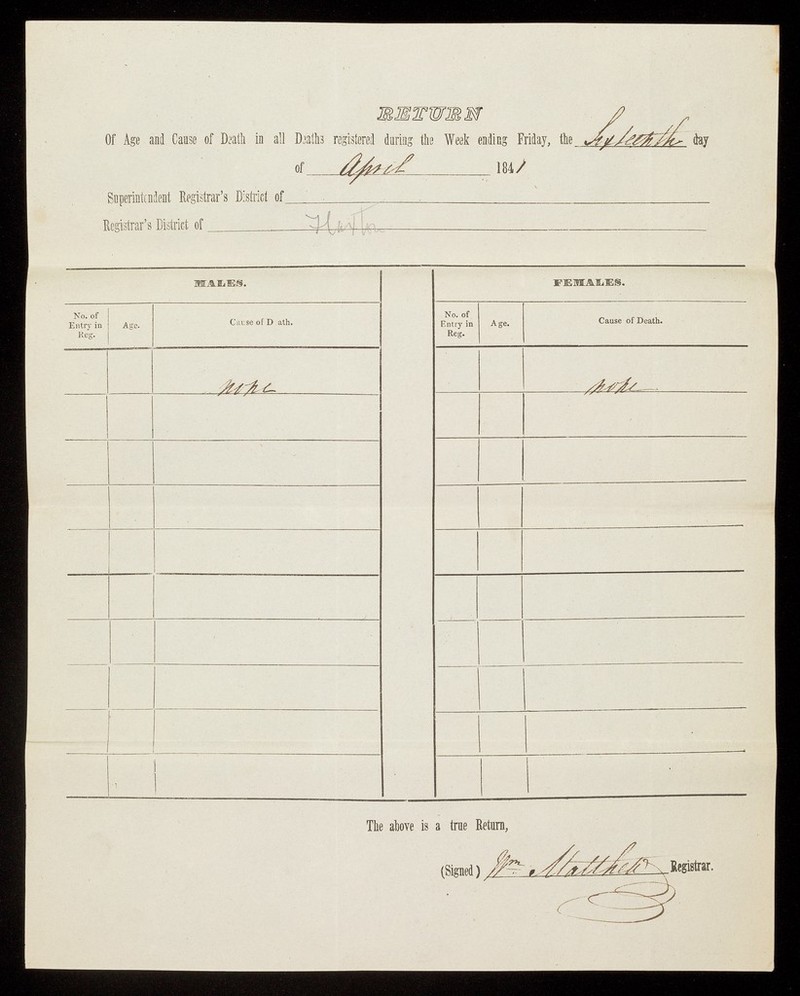 RETURN
Of Age and Cause of Death in all Deaths registered during the Week ending Friday, the Sixteenth day
of April 1841
Superintendent Registrar's District of
Registrar's District of Flaxton
MALES.
FEMALES.
No. of Entry in Reg.
Age.
Cause of D ath.
No. of Entry in Reg.
Age.
Cause of Death.
none
none
The above is a true Return,
(Signed) Wm Matthew Registrar.